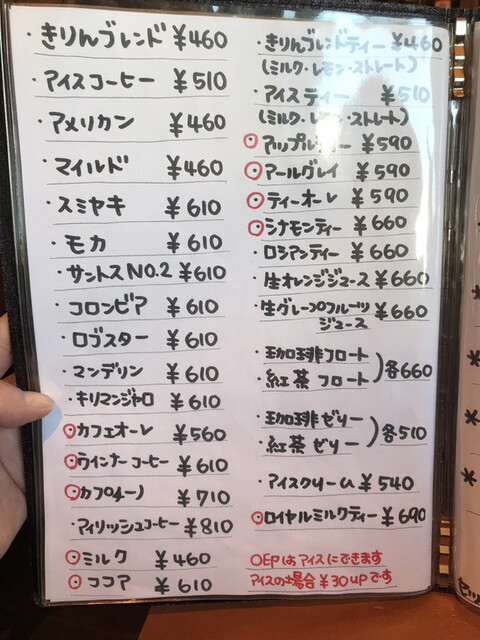 ・きりんブレンド ¥460
・アイスコーヒー ¥510
・アメリカン ¥460
・マイルド ¥460
・スミヤキ ¥610
・モカ ¥610
・サントスNO.2 ¥610
・コロンビア ¥610
・ロブスター ¥610
・マンデリン ¥610
・キリマンジャロ ¥610
⦿カフェオーレ ¥560
⦿ウインナーコーヒー ¥610
⦿カプチーノ ¥710
・アイリッシュコーヒー ¥810
⦿ミルク ¥460
⦿ココア ¥610
・きりんブレンドティー ¥460
(ミルク・レモン・ストレート)
・アイスティー ¥510
(ミルク・レモン・ストレート)
⦿アップルティー ¥590
⦿アールグレイ ¥590
⦿ティーオーレ ¥590
⦿シナモンティー ¥660
・ロシアンティー ¥660
・生オレンジジュース ¥660
・生グレープフルーツジュース ¥660
・珈琲フロート
・紅茶フロート
)各660
・珈琲ゼリー
・紅茶ゼリー
)各510
・アイスクリーム ¥540
⦿ロイヤルミルクティー ¥690
○EPはアイスにできます
アイスの場合¥30UPです